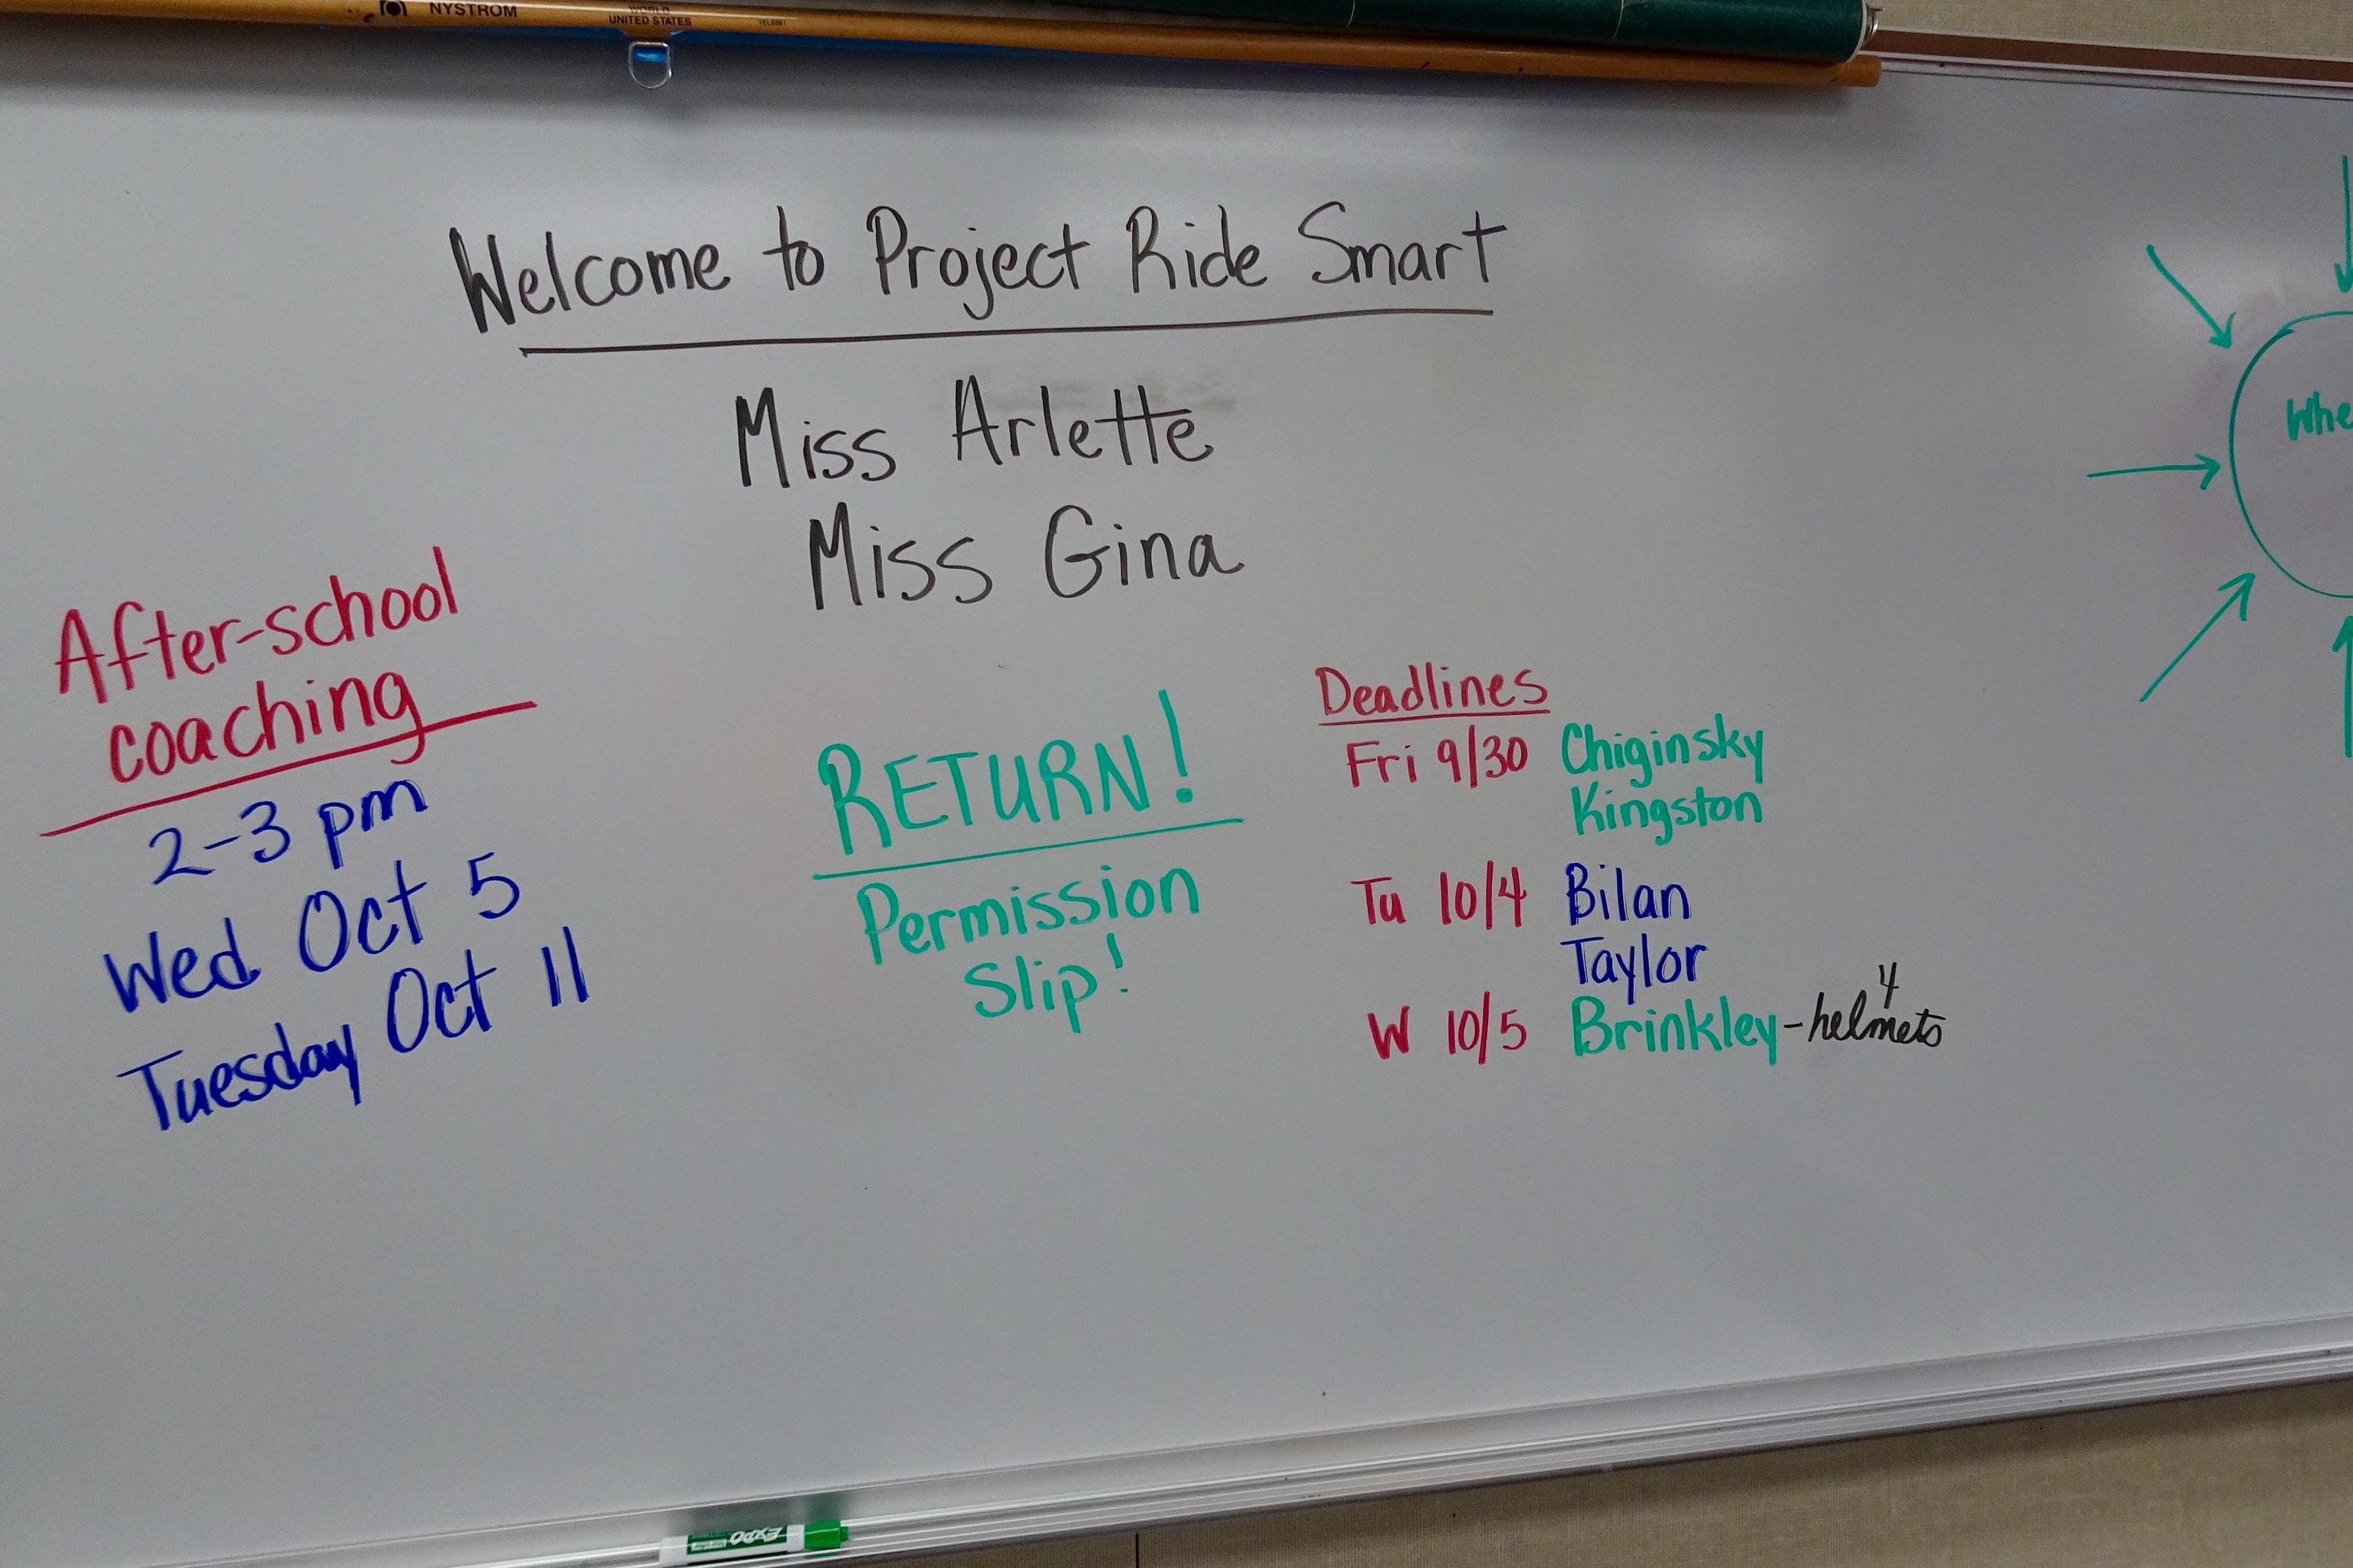 NYSTROM
WORLD
UNITED STATES
Welcome to Project Ride Smart
Miss Arlette
Miss Gina
After-school
coaching
2-3 pm
Wed Oct 5
Tuesday Oct 11
RETURN!
Permission
Slip!
Deadlines
Fri 9/30 Chiginsky
Kingston
Tu 10/4 Bilan
Taylor
W 10/5 Brinkley-helmets
4
Whe
EXPO